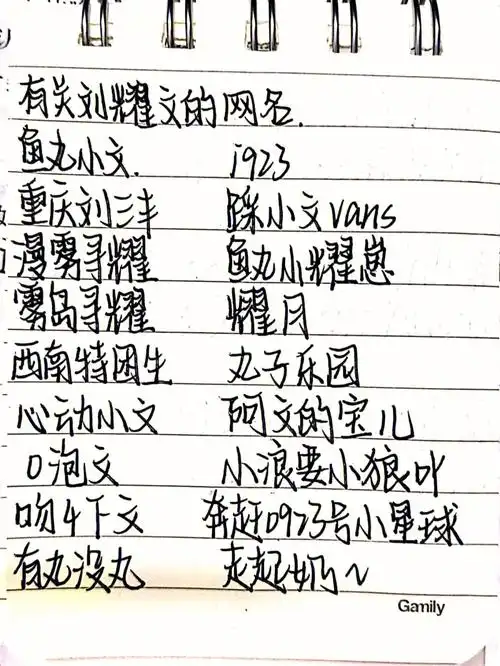 有关刘耀文的网名.
鱼丸小文. i923
重庆刘三丰 踩小文vans
漫雾寻耀 鱼丸小耀崽
雾岛寻耀 耀月
西南特困生 丸子乐园
心动小文 阿文的宝儿
0泡文 小浪要小狼吖
吻4下文 奔赶0923号小星球
有丸没丸 走起奶~
Gamily